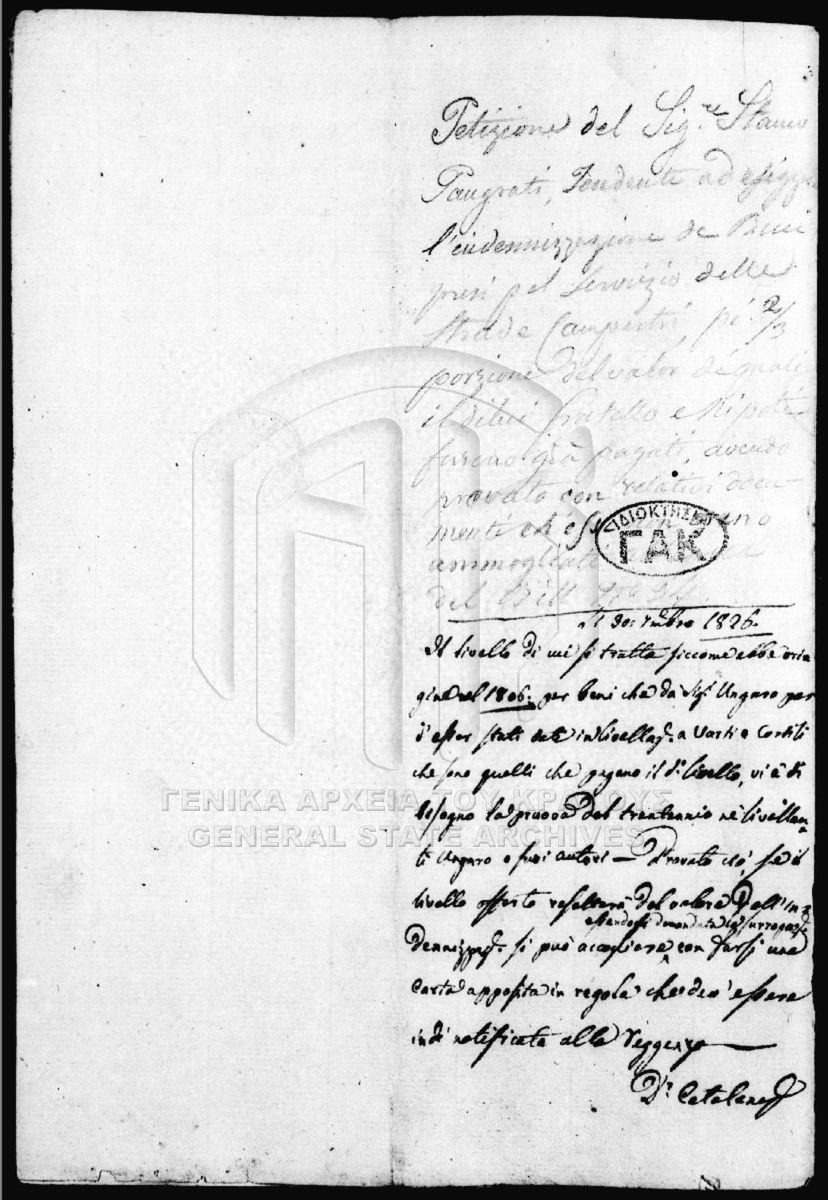 Petizione del Sig.re Stamo
Pangrati, Tendente ad esigger
l'indennizzazione de Beni
presi pel Servizio delle
Strade Campestri, pé 2/3
porzione del valor de quali
il di lui fratello e Nipoti
furono già pagati, avendo
provato con relativi docu-
menti ch'essi non erano
ammogliati
del Bill
ΙΔΙΟΚΤΗΣΙΑ
ΓΑΚ
li 30: 1826.
Il livello di cui si tratta siccome ebbe ori
gine nel 1806. per beni che da Sigi Ungaro per
d'esser stati dati in livellaz.e a Varti e Cortiti
che sono quelli che pagano il do livello, vi è di
bisogno la pruova del trentennio ne' livellan-
ti Ungaro e suoi autori — Provato ciò, se il
livello offerto resulterà del valore dell'In=
essendosi domandata la surrogaz.e
dennizzaz.e si può accogliere con farsi una
Carta apposita in regola che deve essere
indi notificata alla Reggenza —
Dr Catalano
ΓΕΝΙΚΑ ΑΡΧΕΙΑ ΤΟΥ ΚΡΑΤΟΥΣ
GENERAL STATE ARCHIVES